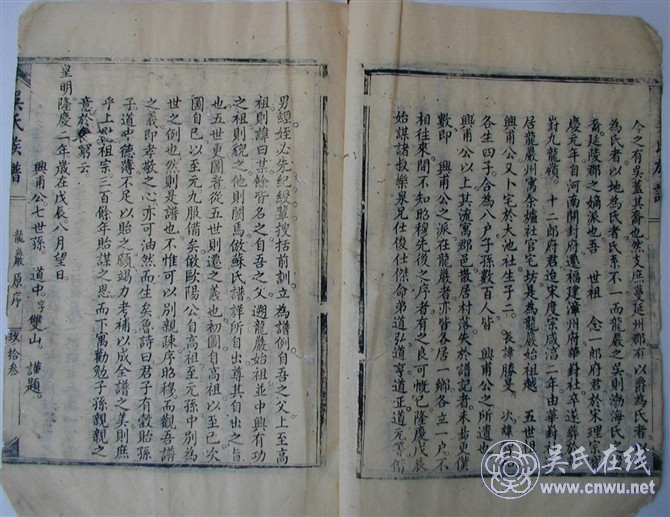 今之有吳蓋其裔也然支庶蔓延州郡有以爵為氏者
為氏者以地為氏者氏系不一而龍巖之吳則渤海氏
裔延陵郡之嫡派也吾 世祖 念一郎府君於宋理宗
慶元年自河南開封府遷福建漳州府華封社卒遂葬
封九龍嶺 十二郎府君迨宋度宗咸淳二年由華封
居龍巖州寓余爐社官宅坊是為龍巖始祖越 五世祖
興甫公又卜宅於大池社生子二 長諱勝旻 次諱
各生四子合為八戶子孫數百人皆 興甫公之所遺也
興甫公以上其流寓郡邑散居村落失於譜記者未告凡僕
數即 興甫公之派在龍巖者亦皆各居一鄉各立一戶不
相往來間不知昭穆先後之序者有之良可慨已隆慶戊辰
始謀諸叔樂泉兄仕俊仕傑命弟道弘道亨道正道元等
男經姪必先紀綬輩搜括前訓立為譜例自吾之父上至高
祖則諱曰某餘皆名之自吾之父遡龍巖始祖並中興有功
之祖則貌之他則闕焉倣蘇氏譜詳所自出尊其自出之旨
也五世更圖者從五世則遷之義也初圖自高祖以至已次
圖自已以至元九服備矣倣歐陽公自高祖至元孫中別為
世之例也然則是譜也不惟可以別親疎序昭穆而觀吾譜
之義即孝敬之心亦可油然而生矣魯詩曰君子有穀貽孫
子道中德薄不足以貽之願竭力考補以成全譜之美則庶
乎上昭祖宗三百餘年貽謀之恩而下寓勸勉子孫親親之
意於無窮云
皇明隆慶二年歲在戊辰八月望日
興甫公七世孫 道中 雙山 謹題
吳氏族譜
龍巖原序
吳氏在线
www.cnwu.net